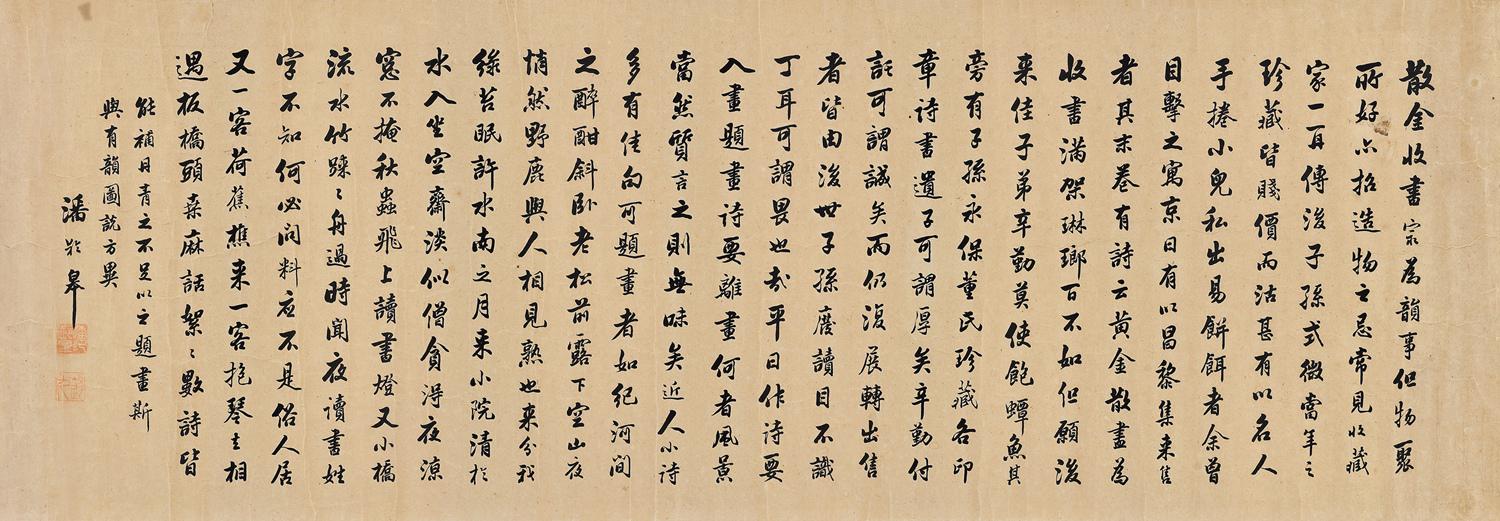 散金收書宗為韻事但物聚
所好亦招造物之忌常見收藏
家一再傳後子孫式微當年之
珍藏皆賤價而沽甚有以名人
手捲小兒私出易餅餌者余曾
目擊之寓京日有以昌黎集來售
者其末卷有詩云黃金散盡為
收書滿架琳瑯百不如但願後
來佳子弟辛勤莫使飽蟫魚其
旁有子孫永保董氏珍藏各印
章詩書遺子可謂厚矣辛勤付
託可謂誠矣而仍復展轉出售
者皆由後世子孫廢讀目不識
丁耳可謂畏也哉平日作詩要
入畫題畫詩要離畫何者風景
當然質言之則無味矣近人小詩
多有佳句可題畫者如紀河間
之醉酣斜臥老松前露下空山夜
悄然野鹿與人相見熟也來分我
綠苔眠許水南之月來小院清於
水人坐空齋淡似僧貪得夜涼
窓不掩秋蟲飛上讀書燈又小橋
流水竹疎疎舟過時聞夜讀書姓
字不知何必問料應不是俗人居
又一客荷蕉樵來一客抱琴去相
遇板橋頭桑麻話絮絮數詩皆
能補丹青之不足以之題畫斯
與有韻圖說方異
潘於皋